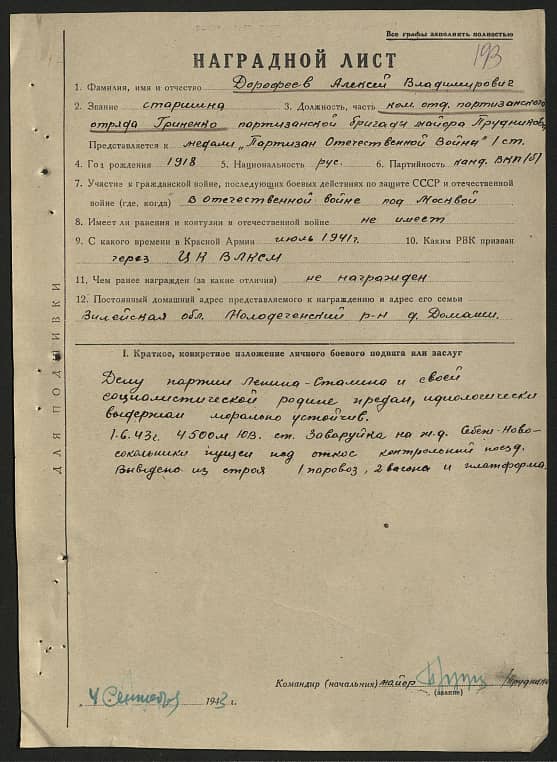 Все графы заполнить полностью
193
НАГРАДНОЙ ЛИСТ
1. Фамилия, имя и отчество Дорофеев Алексей Владимирович
2. Звание старшина 3. Должность, часть ком. отд. партизанского
отряда Гриненко партизанской бригады майора Прудникова
Представляется к медали „Партизан Отечественной Война" I ст.
4. Год рождения 1918 5. Национальность рус. 6. Партийность канд. ВКП(б)
7. Участие в гражданской войне, последующих боевых действиях по защите СССР и отечественной
войне (где, когда) В Отечественной войне под Москвой
8. Имеет ли ранения и контузии в отечественной войне не имеет
9. С какого времени в Красной Армии июль 1941г. 10. Каким РВК призван
через ЦК ВЛКСМ
11. Чем ранее награжден (за какие отличия) не награжден
12. Постоянный домашний адрес представляемого к награждению и адрес его семьи
Вилейская обл. Молодеченский р-н д. Домаши.
I. Краткое, конкретное изложение личного боевого подвига или заслуг
Делу партии Ленина-Сталина и своей
социалистической родине предан, идиологически
выдержан морально устойчив.
1.6.43г. 4500м ЮВ. ст. Заваруйка на ж.д. Себеж-Ново-
сокольники пущен под откос контрольный поезд.
Выведено из строя 1 паровоз, 2 вагона и платформа.
ДЛЯ ПОДШИВКИ
Командир (начальник) майор /Прудников
(звание)
„4 Сентября 1943 г.